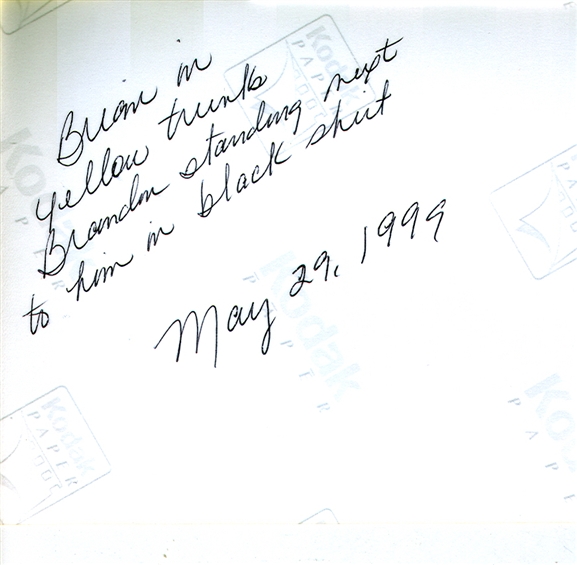 Brian in
yellow trunks
Brandon standing next
to him in black shirt
May 29, 1999
Kodak
PAPER
Kodak
PAPER
Kodak
PAPER
Kodak
PAPER